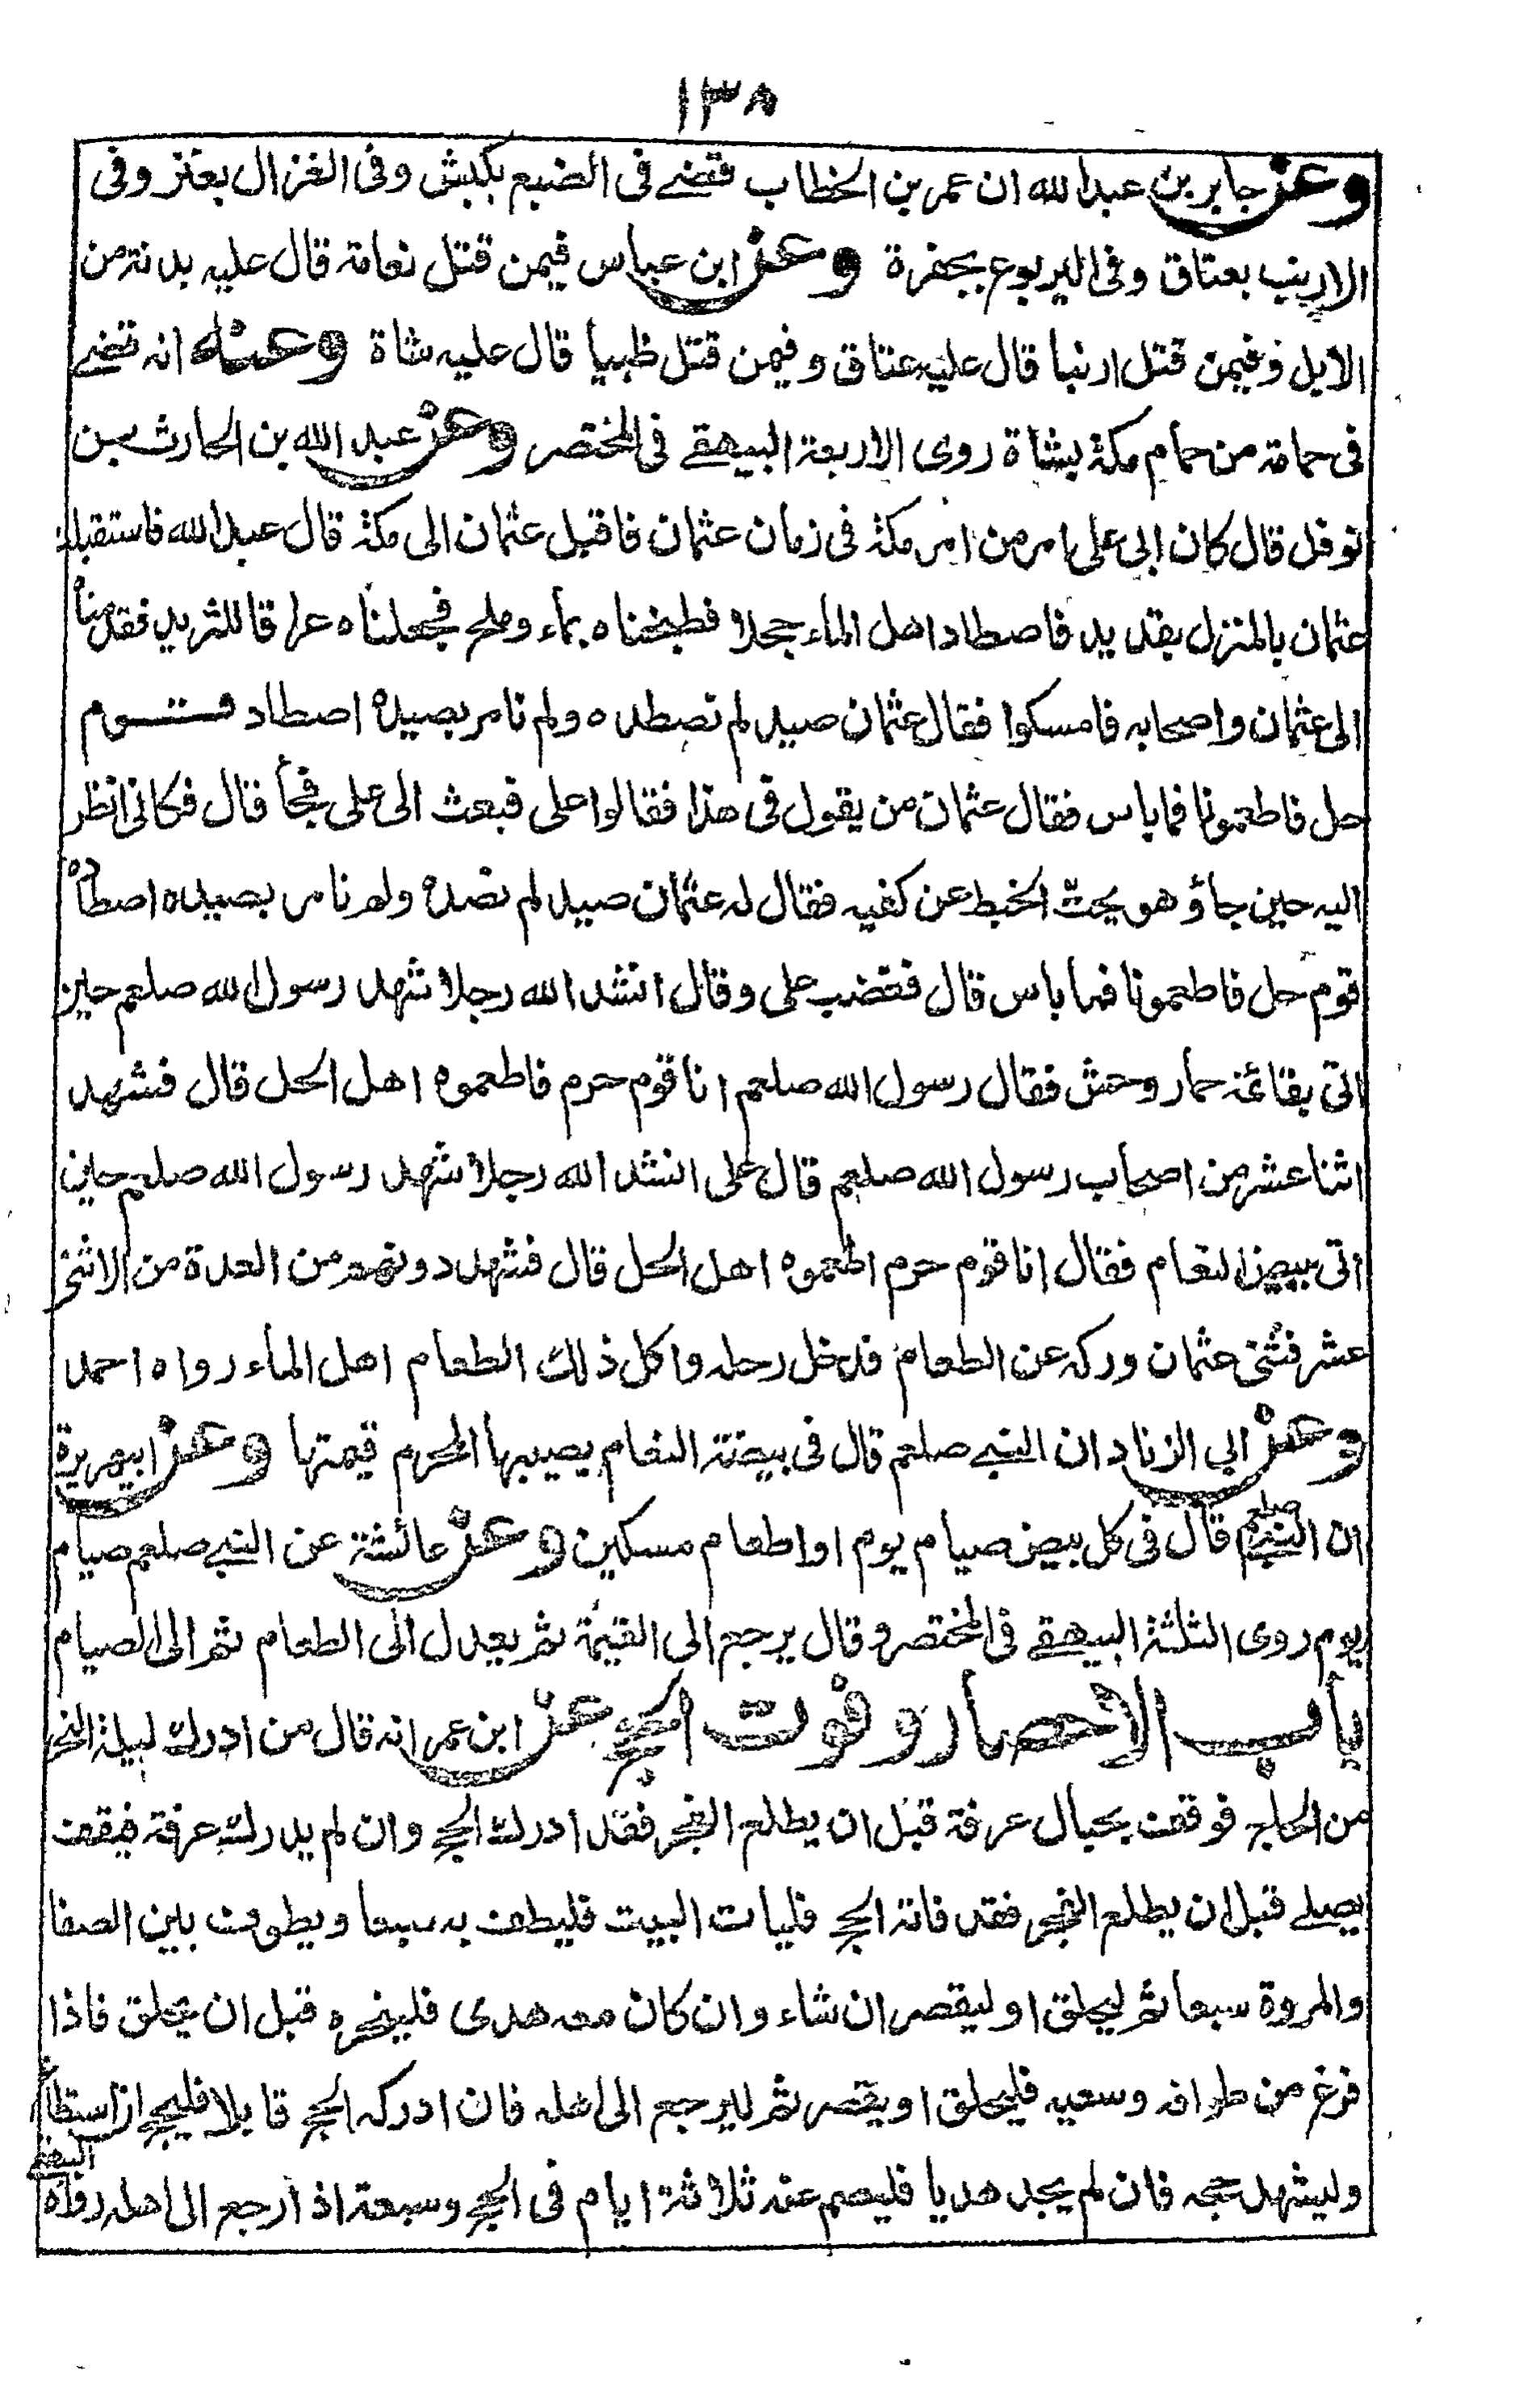 ١٣٨
وعن جابر بن عبد الله ان عمر بن الخطاب قضے فى الضبع بكبش وفى الغزال بعنز وفى
الارنب بعناق وفى اليربوع بجفرة وعن ابن عباس فيمن قتل نعامة قال عليه بدنة من
الابل وفيمن قتل ارنبا قال عليه عناق وفيمن قتل ظبيا قال عليه شاة وعنه انه قضے
فى حمامة من حمام مكة بشاة روى الاربعة البيهقے فى المختصر وعن عبد الله بن الحارث بن
نوفل قال كان ابى على امر من امر مكة فى زمان عثمان فاقبل عثمان الى مكة قال عبد الله فاستقبلت
عثمان بالمنزل بقديد فاصطاد اهل الماء حجلا فطبخناه بماء وملح فجعلناه عراقا للثريد فقدمناه
الى عثمان واصحابه فامسكوا فقال عثمان صيد لم نصطده ولم نامر بصيده اصطاد قوم
حل فاطعمونا فما باس فقال عثمان من يقول فى هذا فقالوا على فبعث الى على فجاء قال فكانى انظر
اليه حين جاؤ هو يحتّ الخبط عن كفيه فقال له عثمان صيد لم نصده ولم نامر بصيده اصطاده
قوم حل فاطعمونا فما باس قال فغضب على وقال انشد الله رجلا شهد رسول الله صلعم حين
اتى بقائمة حمار وحش فقال رسول الله صلعم انا قوم حرم فاطعموه اهل الحل قال فشهد
اثنا عشر من اصحاب رسول الله صلعم قال على انشد الله رجلا شهد رسول الله صلعم حين
اتى ببيض النعام فقال انا قوم حرم اطعموه اهل الحل قال فشهد دونهم من العدة من الاثنى
عشر فثنى عثمان وركه عن الطعام فدخل رحله واكل ذلك الطعام اهل الماء رواه احمد
وعن ابى الزناد ان النبے صلعم قال فى بيضة النعام يصيبها المحرم قيمتها وعن ابيهريرة
ان النبے صلعم قال فى كل بيض صيام يوم او اطعام مسكين وعن عائشة عن النبے صلعم صيام
يوم روى الثلثة البيهقے فى المختصر وقال يرجع الى القيمة ثم يعدل الى الطعام ثم الى الصيام
باب الاحصار وفوت الحج عن ابن عمر انه قال من ادرك ليلة النحر
من الحاج فوقف بحيال عرفة قبل ان يطلع الفجر فقد ادرك الحج وان لم يدرك عرفة فيقف
يصلے قبل ان يطلع الفجر فقد فاته الحج فليات البيت فليطف به سبعا ويطوف بين الصفا
والمروة سبعا ثم ليحلق او ليقصر ان شاء وان كان معه هدى فلينحره قبل ان يحلق فاذا
فرغ من طوافه وسعيه فليحلق او يقصر ثم ليرجع الى اهله فان ادركه الحج قابلا فليحج ان استطاع
وليشهد حجه فان لم يجد هديا فليصم عنه ثلاثة ايام فى الحج وسبعة اذا رجع الى اهله رواه البيهقے